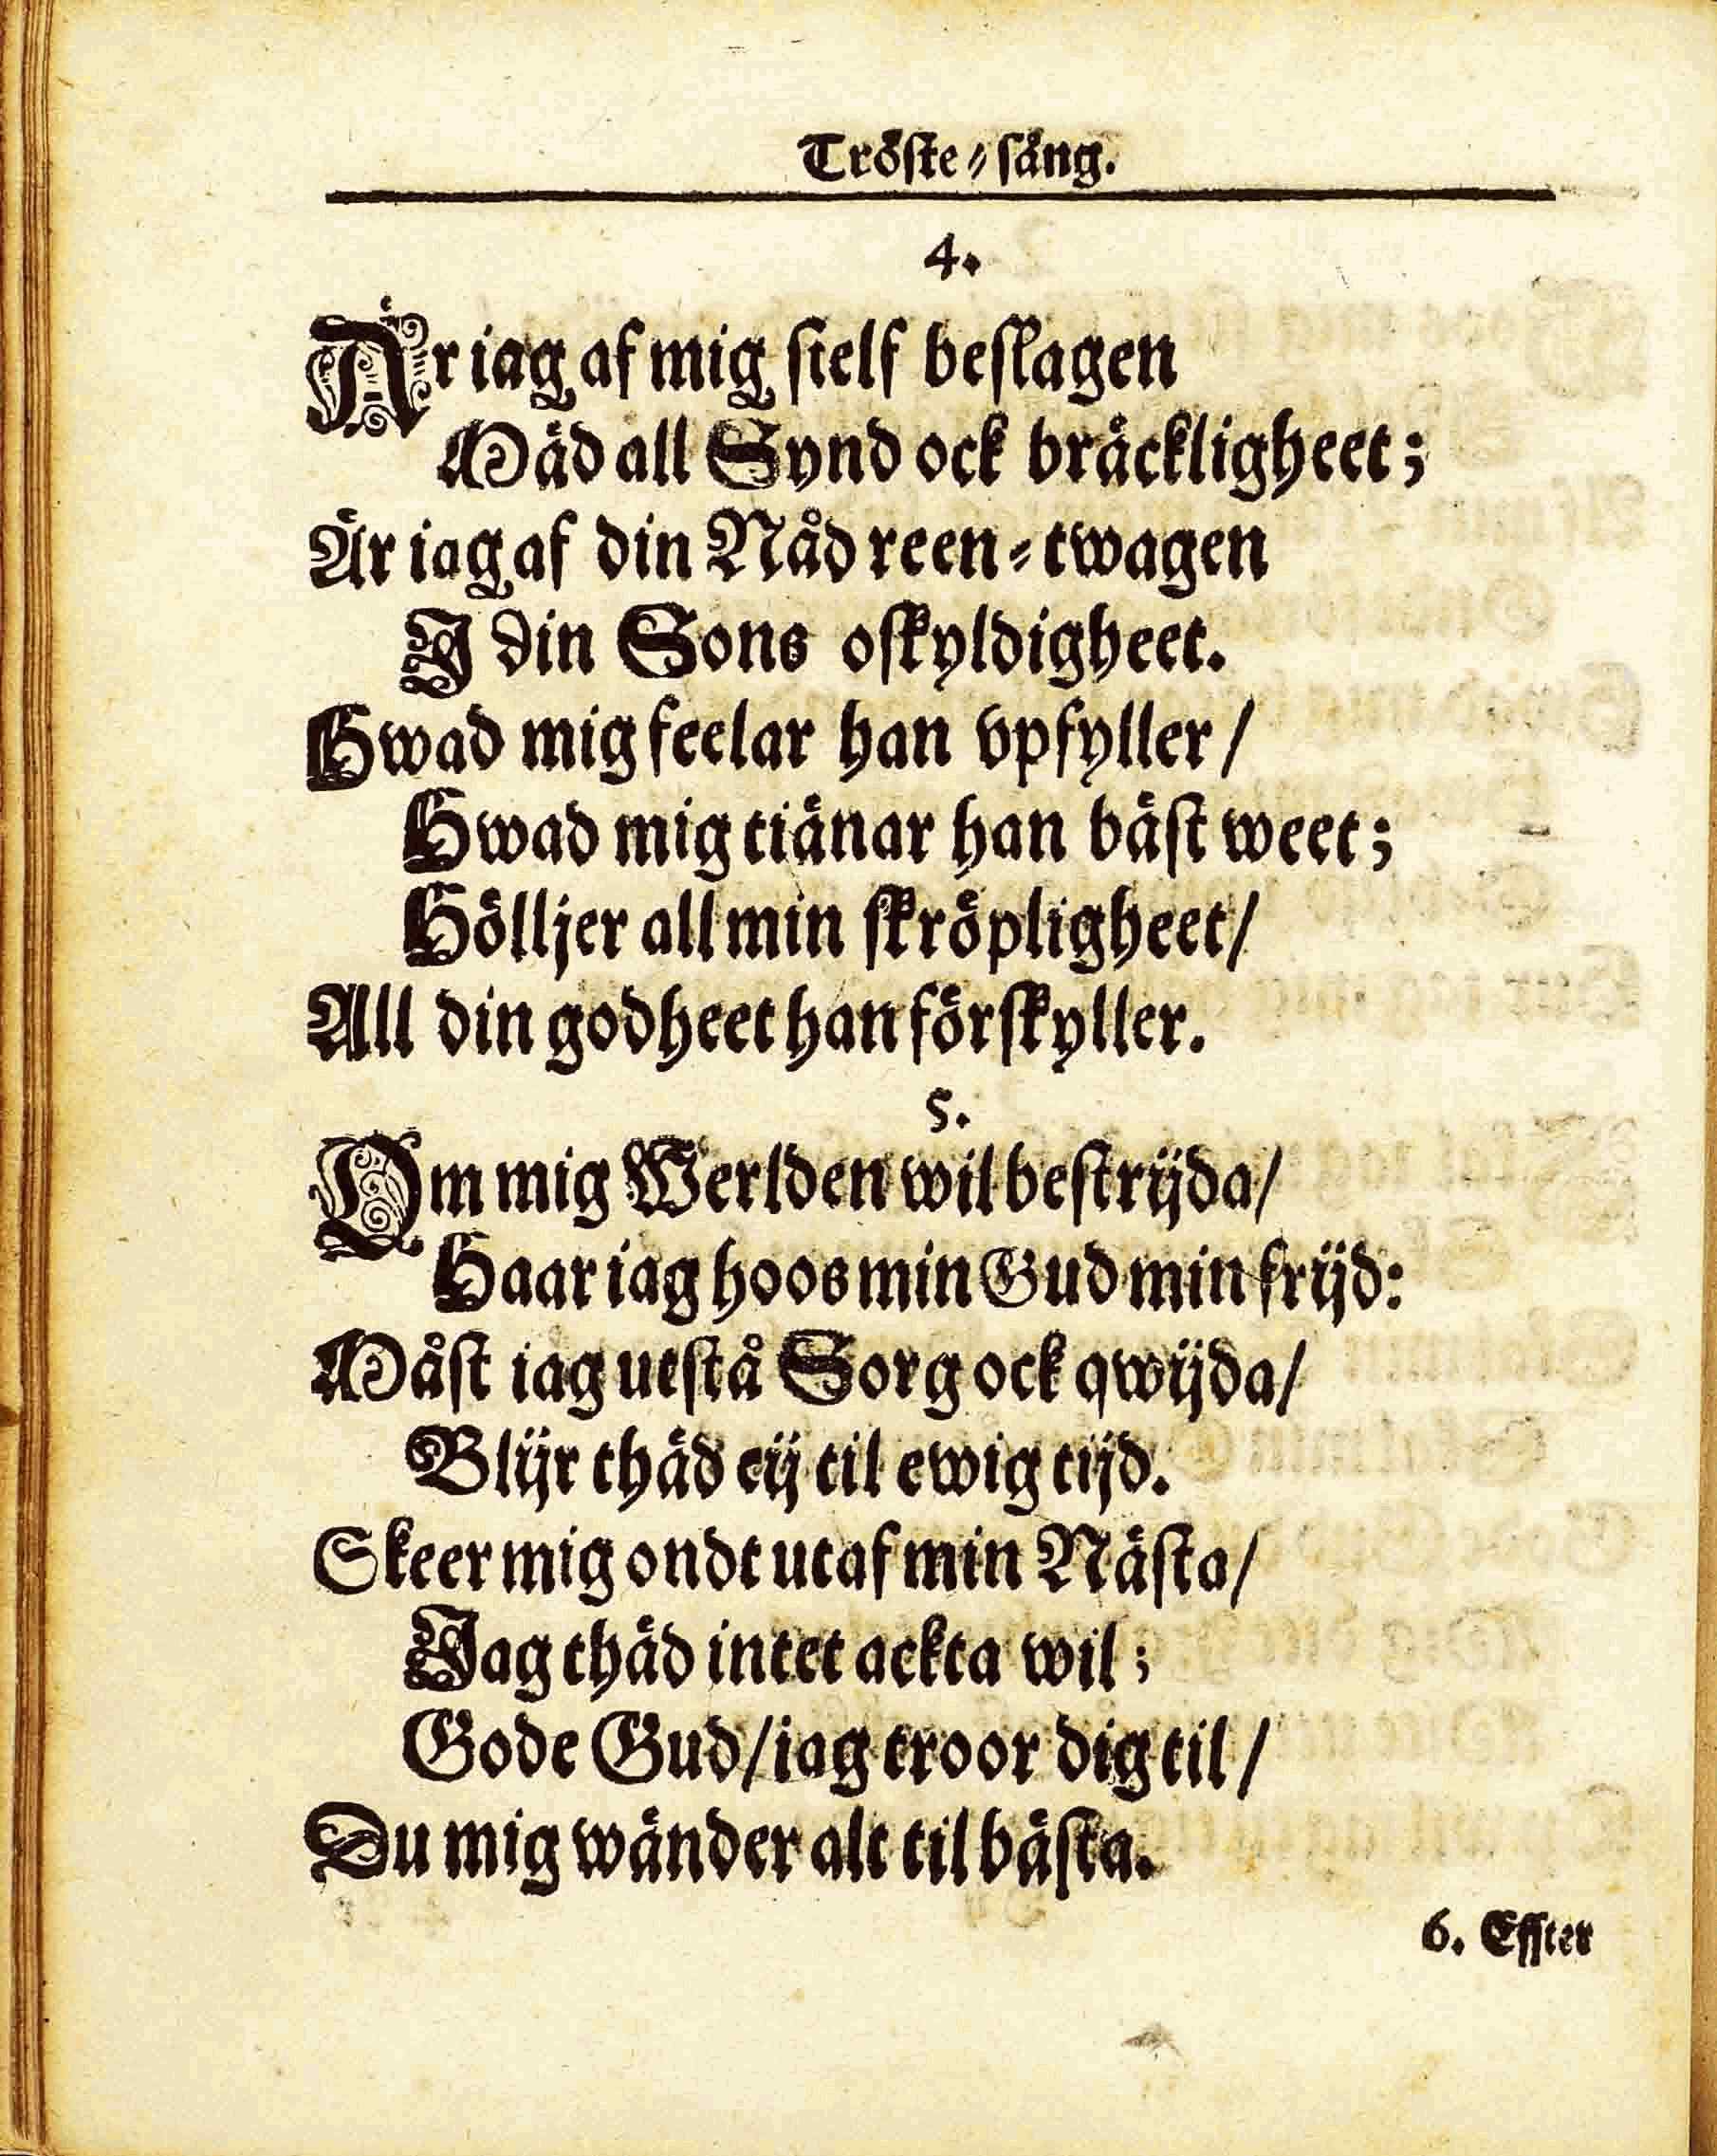 Tröste-sång.
4.
Är iag af mig sielf beslagen
Mäd all Synd ock bräckligheet;
Är iag af din Nåd reen-twagen
I din Sons oskyldigheet.
Hwad mig feelar han vpfyller/
Hwad mig tiänar han bäst weet;
Hölljer all min skröpligheet/
All din godheet han förskyller.
5.
Om mig Werlden wil bestrijda/
Haar iag hoos min Gud min frijd:
Måst iag utstå Sorg ock qwijda/
Blijr thäd eij til ewig tijd.
Skeer mig ondt utaf min Nästa/
Jag thäd intet ackta wil;
Gode Gud/ iag troor dig til/
Du mig wänder alt til bästa.
6. Effter